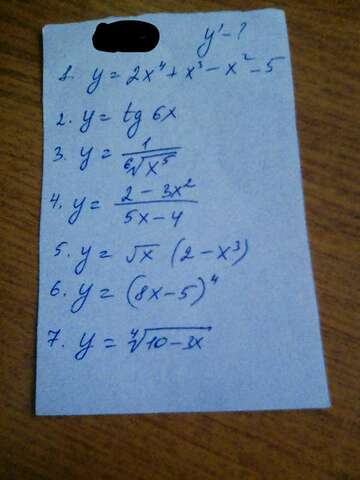 y' - ?
1. y = 2x⁴ + x³ - x² - 5
2. y = tg 6x
3. y = 1/⁶√x⁵
4. y = (2 - 3x²)/(5x - 4)
5. y = √x (2 - x³)
6. y = (8x - 5)⁴
7. y = ⁴√(10 - 3x)